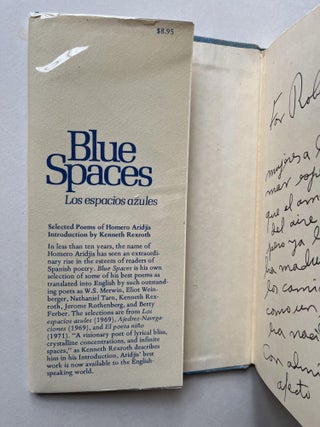 $8.95
Blue
Spaces
Los espacios azules
Selected Poems of Homero Aridjis
Introduction by Kenneth Rexroth
In less than ten years, the name of
Homero Aridjis has seen an extraordi-
nary rise in the esteem of readers of
Spanish poetry. Blue Spaces is his own
selection of some of his best poems as
translated into English by such outstand-
ing poets as W.S. Merwin, Eliot Wein-
berger, Nathaniel Tarn, Kenneth Rex-
roth, Jerome Rothenberg, and Betty
Ferber. The selections are from Los
espacios azules (1969), Ajedrez-Navega-
ciones (1969), and El poeta niño
(1971). "A visionary poet of lyrical bliss,
crystalline concentrations, and infinite
spaces," as Kenneth Rexroth describes
him in his Introduction, Aridjis' best
work is now available to the English-
speaking world.
For Rob
mujeres a
mas
que el am
del aire
pero ya
ha madu
los cami
como un
ha naci
Con admi
afecto